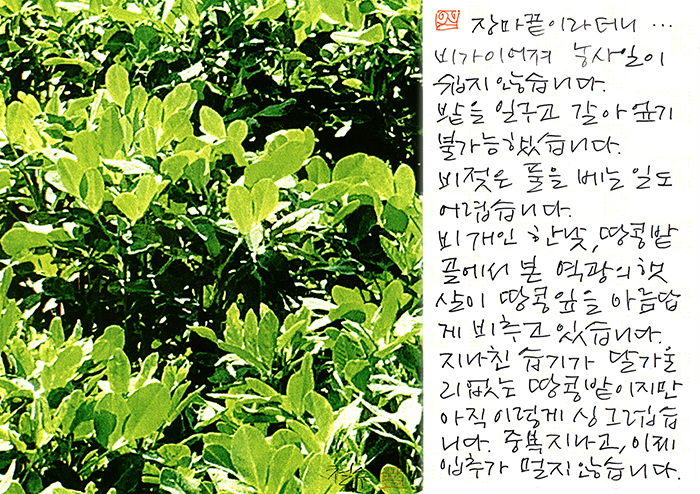 장마끝이라더니 …
비가이어져 농사일이
쉽지않습니다.
밭을 일구고 갈아엎기
불가능했습니다.
비젖은 풀을 베는 일도
어렵습니다.
비개인 한낮, 땅콩밭
끝에서 본 역광의 햇
살이 땅콩잎을 아름답
게 비추고 있습니다.
지나친 습기가 달가울
리없는 땅콩밭이지만
아직 이렇게 싱그럽습
니다. 중복지나고, 이제
입추가 멀지않습니다.